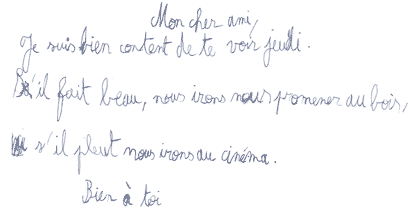 Mon cher ami,
Je suis bien content de te voir jeudi.
S'il fait beau, nous irons nous promener au bois,
s'il pleut nous irons au cinéma.
Bien à toi